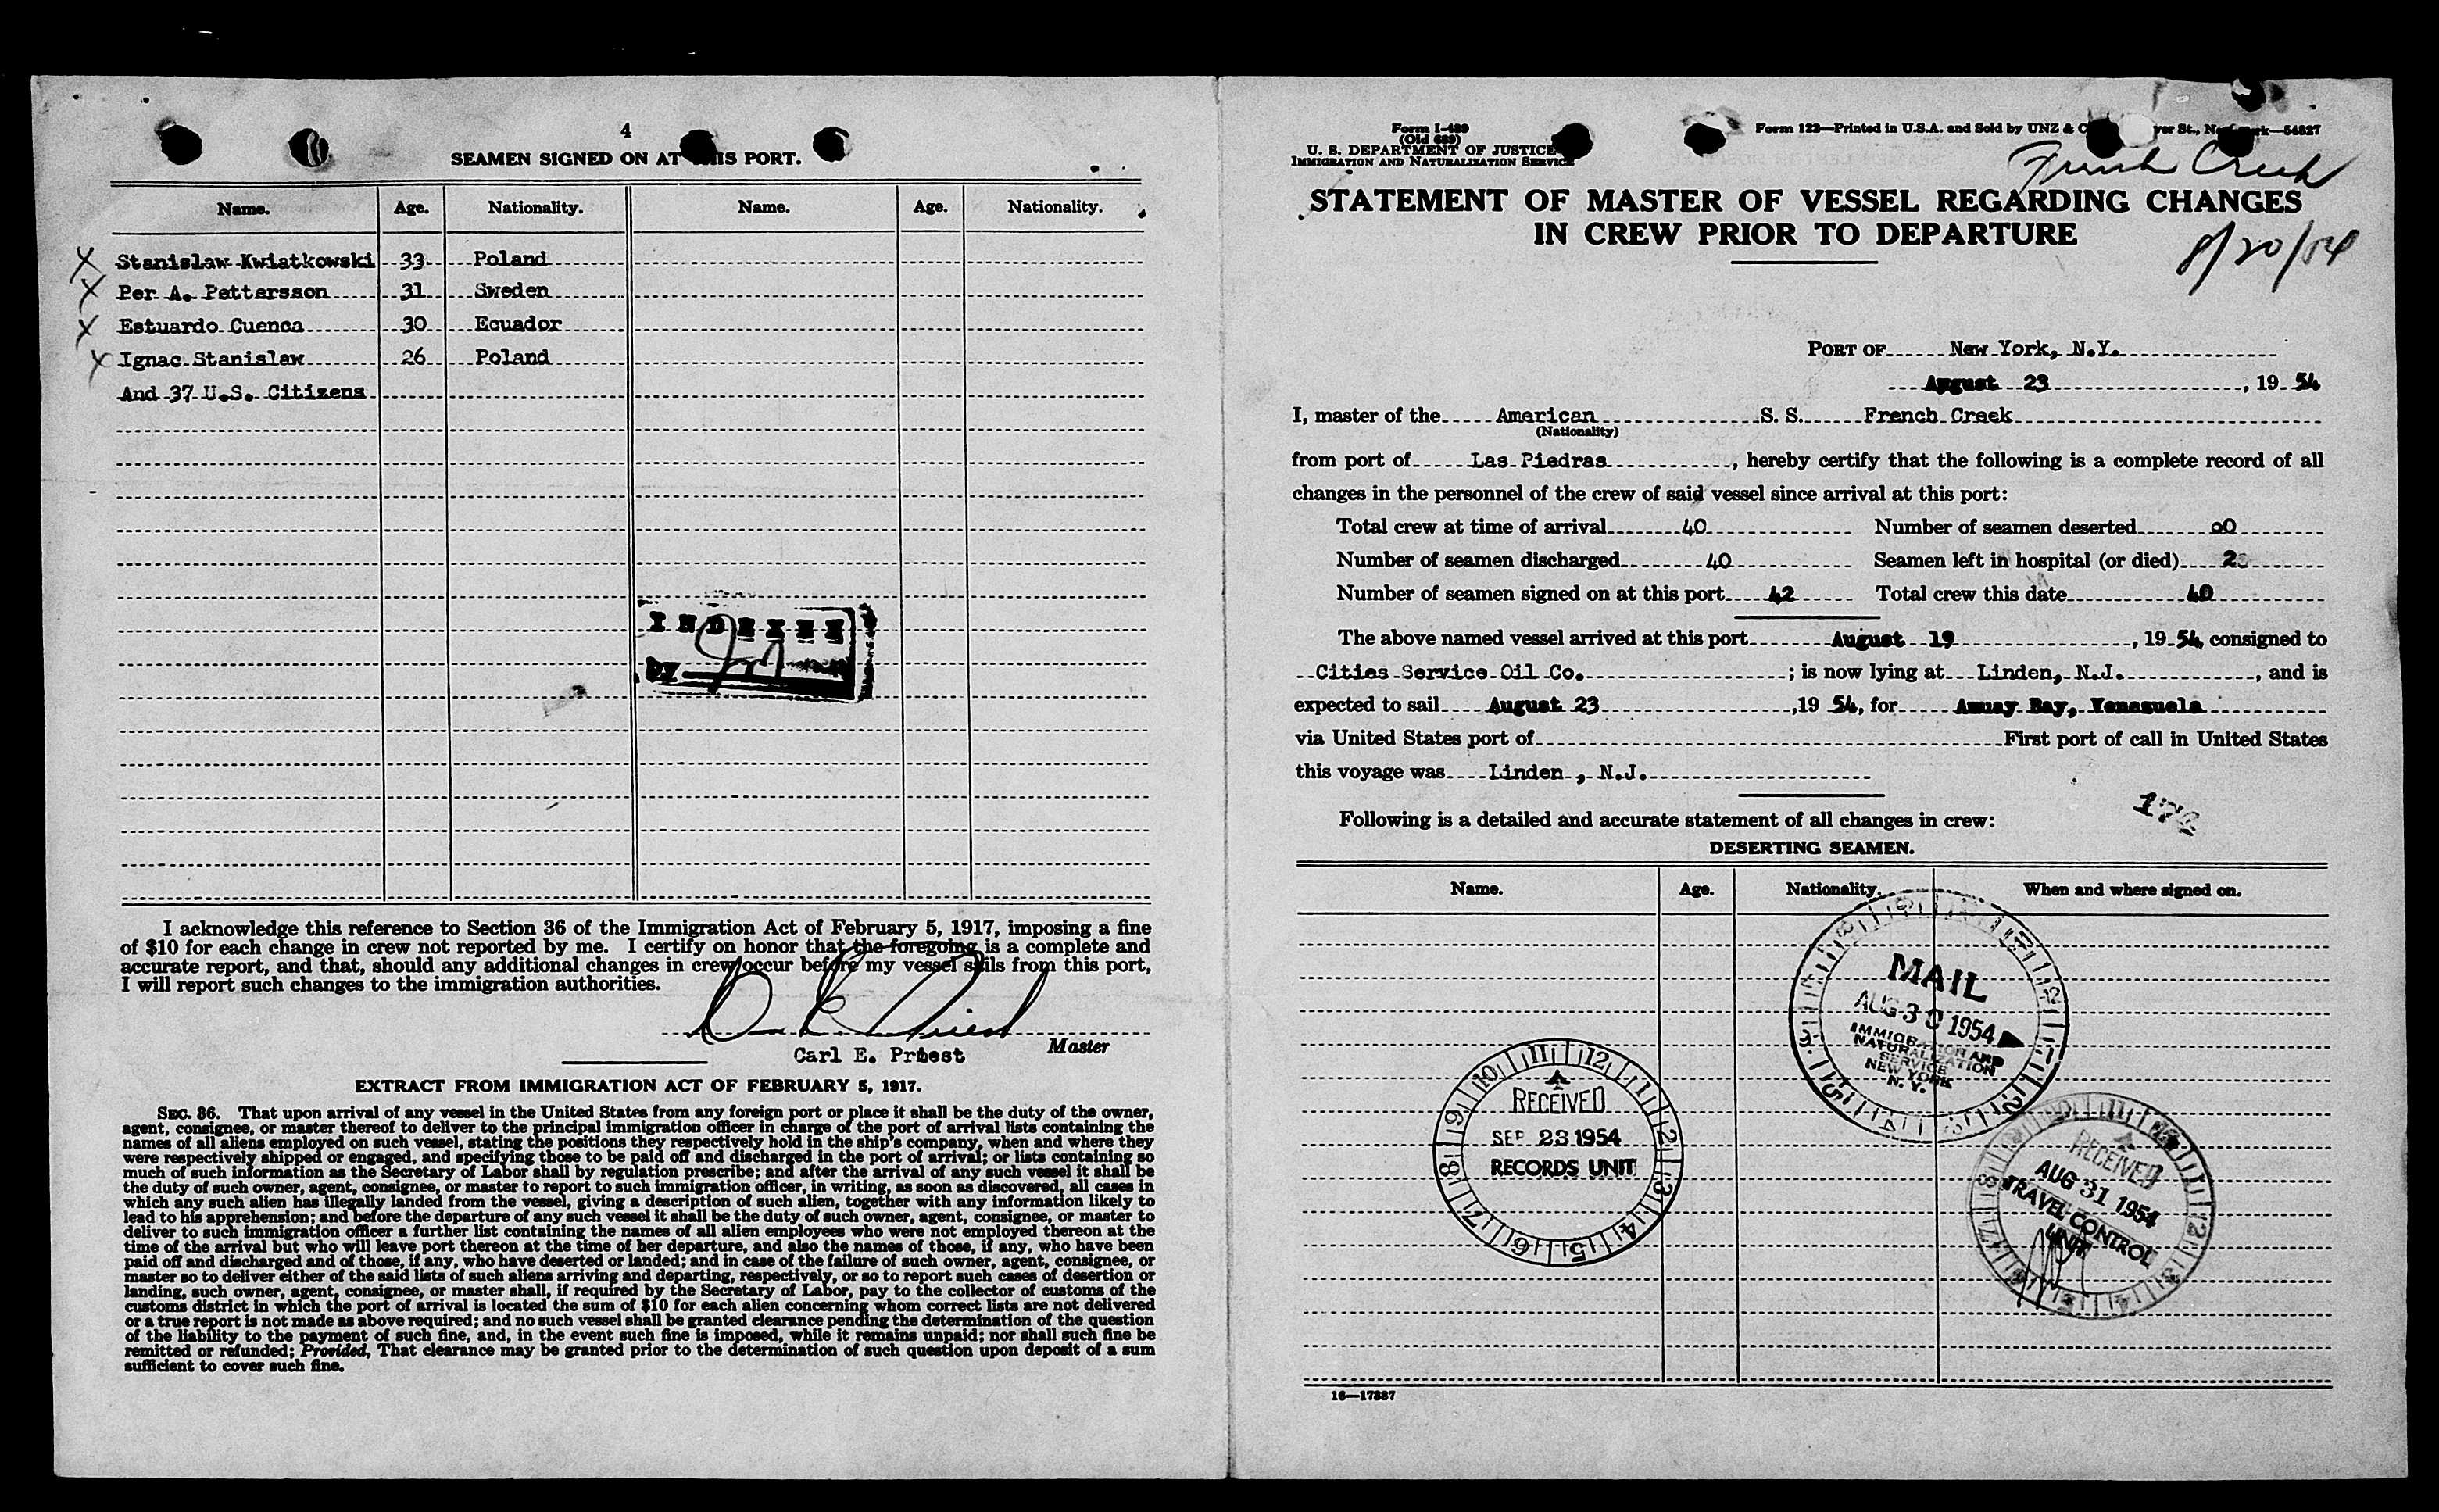 4
SEAMEN SIGNED ON AT THIS PORT.
Name. Age. Nationality. Name. Age. Nationality.
X Stanislaw Kwiatkowski 33 Poland
X Per A. Pettersson 31 Sweden
X Estuardo Cuenca 30 Ecuador
X Ignac Stanislaw 26 Poland
And 37 U.S. Citizens
INDEXED
BY
I acknowledge this reference to Section 36 of the Immigration Act of February 5, 1917, imposing a fine
of $10 for each change in crew not reported by me. I certify on honor that the foregoing is a complete and
accurate report, and that, should any additional changes in crew occur before my vessel sails from this port,
I will report such changes to the immigration authorities.
Carl E. Priest Master
EXTRACT FROM IMMIGRATION ACT OF FEBRUARY 5, 1917.
SEC. 36. That upon arrival of any vessel in the United States from any foreign port or place it shall be the duty of the owner,
agent, consignee, or master thereof to deliver to the principal immigration officer in charge of the port of arrival lists containing the
names of all aliens employed on such vessel, stating the positions they respectively hold in the ship's company, when and where they
were respectively shipped or engaged, and specifying those to be paid off and discharged in the port of arrival; or lists containing so
much of such information as the Secretary of Labor shall by regulation prescribe; and after the arrival of any such vessel it shall be
the duty of such owner, agent, consignee, or master to report to such immigration officer, in writing, as soon as discovered, all cases in
which any such alien has illegally landed from the vessel, giving a description of such alien, together with any information likely to
lead to his apprehension; and before the departure of any such vessel it shall be the duty of such owner, agent, consignee, or master to
deliver to such immigration officer a further list containing the names of all alien employees who were not employed thereon at the
time of the arrival but who will leave port thereon at the time of her departure, and also the names of those, if any, who have been
paid off and discharged and of those, if any, who have deserted or landed; and in case of the failure of such owner, agent, consignee, or
master so to deliver either of the said lists of such aliens arriving and departing, respectively, or so to report such cases of desertion or
landing, such owner, agent, consignee, or master shall, if required by the Secretary of Labor, pay to the collector of customs of the
customs district in which the port of arrival is located the sum of $10 for each alien concerning whom correct lists are not delivered
or a true report is not made as above required; and no such vessel shall be granted clearance pending the determination of the question
of the liability to the payment of such fine, and, in the event such fine is imposed, while it remains unpaid; nor shall such fine be
remitted or refunded; Provided, That clearance may be granted prior to the determination of such question upon deposit of a sum
sufficient to cover such fine.
Form I-489
(Old 689)
U. S. DEPARTMENT OF JUSTICE
IMMIGRATION AND NATURALIZATION SERVICE
Form 122—Printed in U.S.A. and Sold by UNZ & C St., New York—54827
French Creek
STATEMENT OF MASTER OF VESSEL REGARDING CHANGES
IN CREW PRIOR TO DEPARTURE
8/20/54
PORT OF New York, N.Y.
August 23, 19 54
I, master of the American S. S. French Creek
(Nationality)
from port of Las Piedras, hereby certify that the following is a complete record of all
changes in the personnel of the crew of said vessel since arrival at this port:
Total crew at time of arrival 40 Number of seamen deserted 00
Number of seamen discharged 40 Seamen left in hospital (or died) 2
Number of seamen signed on at this port 42 Total crew this date 40
The above named vessel arrived at this port August 19, 19 54, consigned to
Cities Service Oil Co.; is now lying at Linden, N.J., and is
expected to sail August 23, 19 54, for Amuay Bay, Venezuela
via United States port of First port of call in United States
this voyage was Linden, N.J.
174
Following is a detailed and accurate statement of all changes in crew:
DESERTING SEAMEN.
Name. Age. Nationality. When and where signed on.
MAIL
AUG 30 1954
IMMIGRATION AND
NATURALIZATION
SERVICE
NEW YORK
N. Y.
RECEIVED
SEP 23 1954
RECORDS UNIT
RECEIVED
AUG 31 1954
TRAVEL CONTROL
UNIT
16—17887